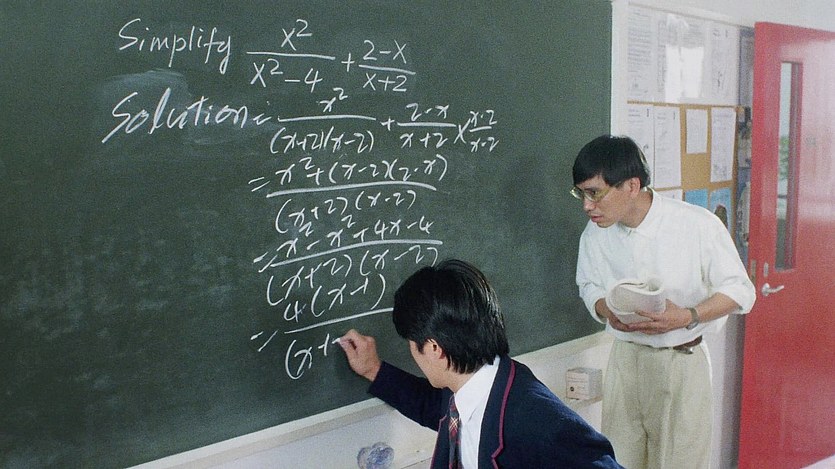 Simplify x²/(x²-4) + (2-x)/(x+2)
Solution: x²/((x+2)(x-2)) + (2-x)/(x+2) × (x-2)/(x-2)
= (x²+(x-2)(2-x))/((x+2)(x-2))
= (x²-x²+4x-4)/((x+2)(x-2))
= 4(x-1)/(x+